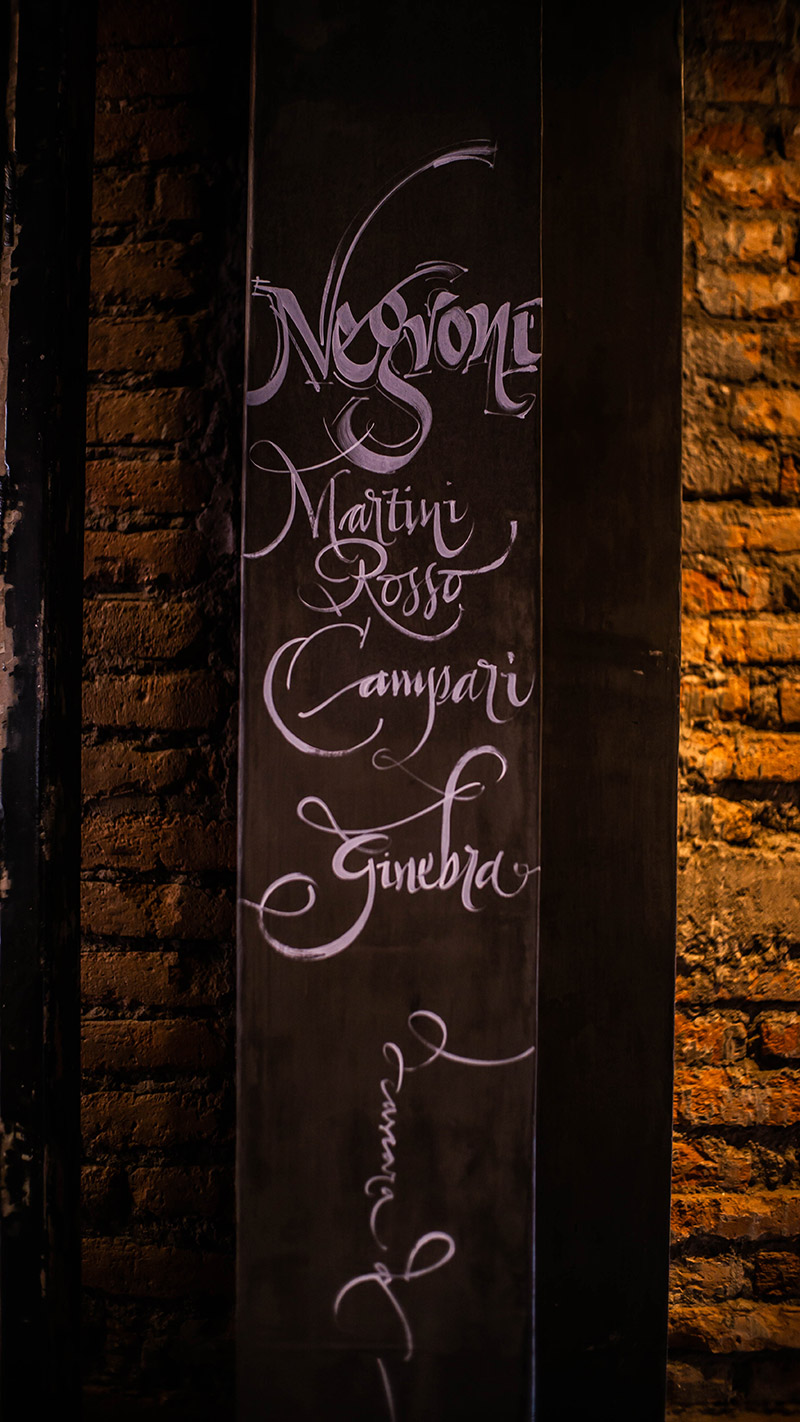 Negroni
Martini
Rosso
Campari
Ginebra